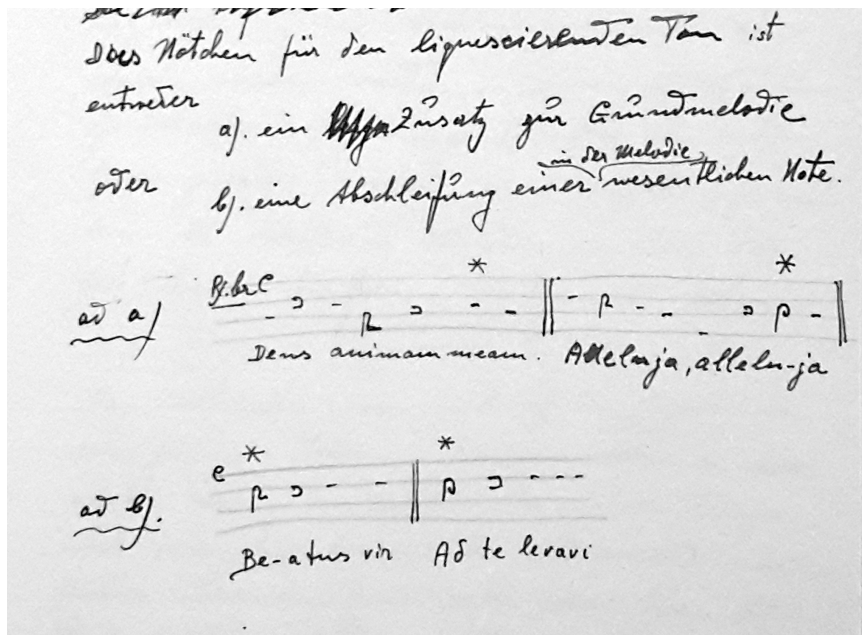 Das Nötchen für den liquescierenden Ton ist
entweder
a). ein Zusatz zur Grundmelodie
in der Melodie
oder b). eine Abschleifung einer wesentlichen Note.
*
*
ad a) C
Deus animam meam. Alleluja, allelu-ja
*
*
ad b). C
Be-atus vir Ad te levavi